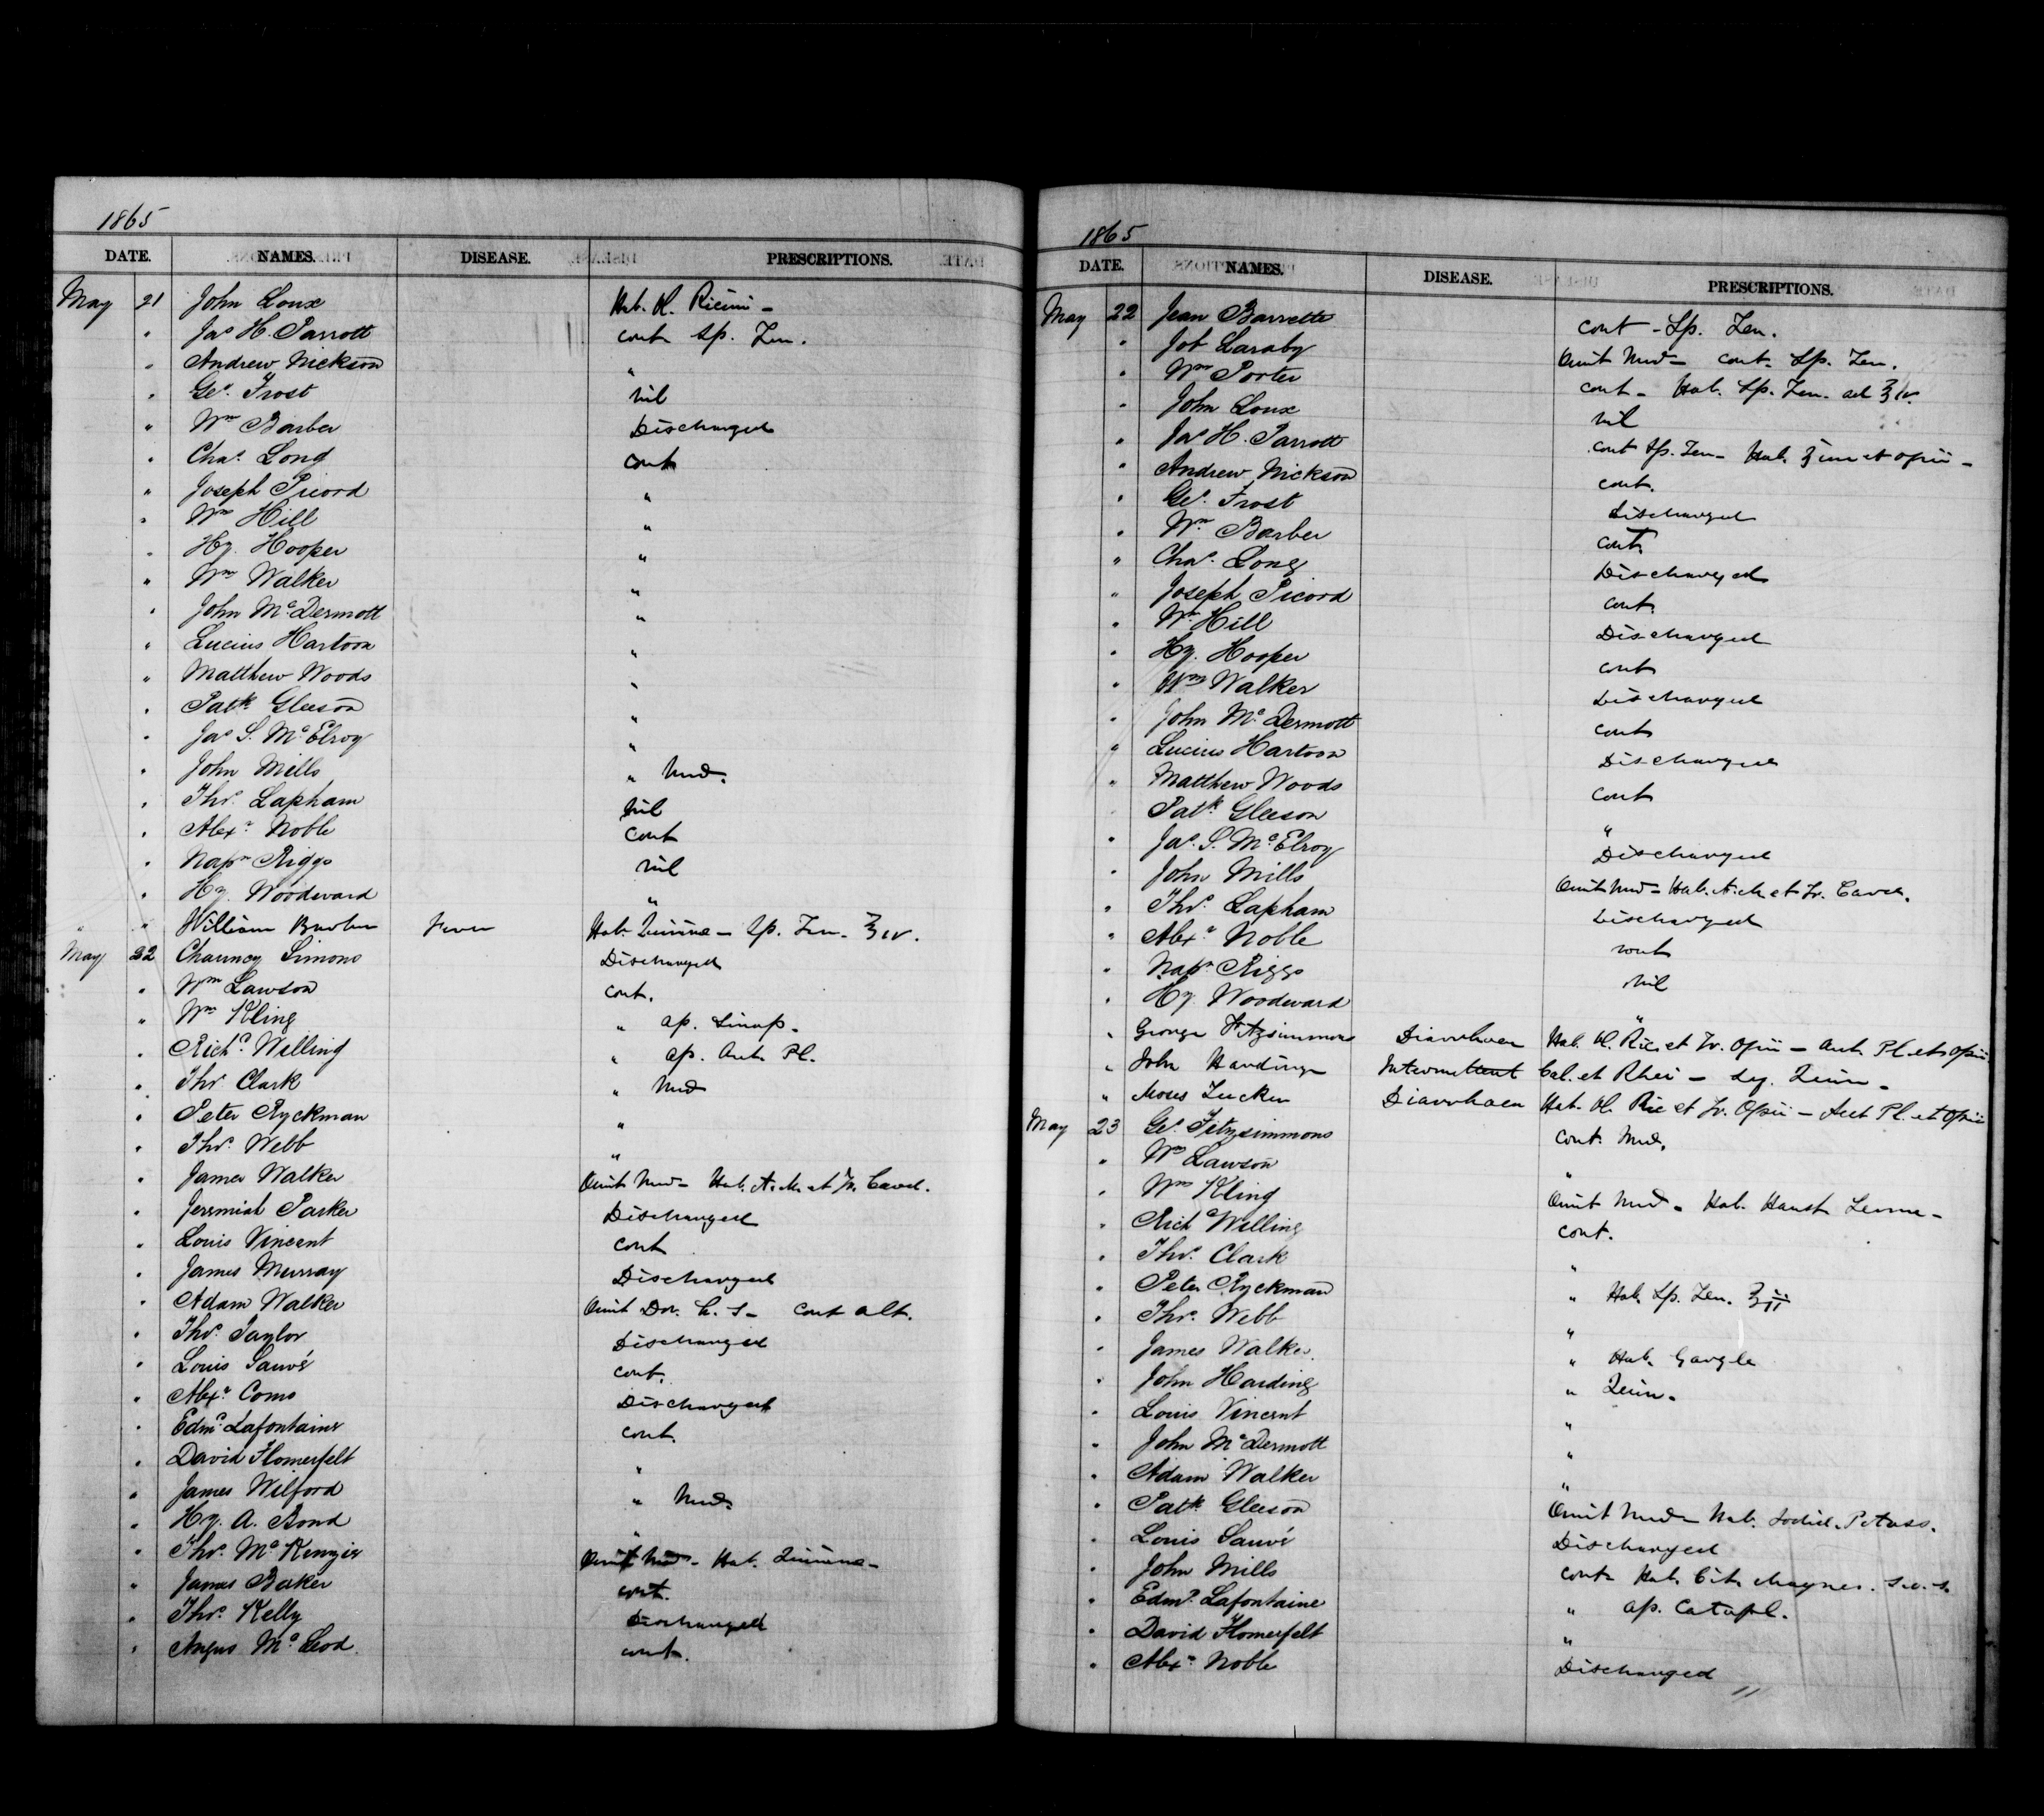 1865
DATE. NAMES. DISEASE. PRESCRIPTIONS.
May 21 John Loux Hab. Ol. Ricini -
" Jas H. Parrott cont Sp. Fru.
" Andrew Nickson "
" Geo. Frost nil
" Wm Barber Discharged
" Chas. Long cont
" Joseph Picord "
" Wm Hill "
" Hy. Hooper "
" Wm Walker "
" John McDermott "
" Lucius Hartoon "
" Matthew Woods "
" Patk Gleeson "
" Jas S. McElroy "
" John Mills " Med.
" Thos. Lapham nil
" Alexr Noble cont
" Napn Riggs nil
" Hy. Woodward "
" William Fever Hab. Quinine - Sp. Fru. ʒiv.
May 22 Chauncy Simons Discharged
" Wm Lawson cont.
" Wm Kling " ap. Sinap.
" Richd Welling " ap. Pl.
" Thos Clark " Med
" Peter Ryckman "
" Thos. Webb "
" James Walker Omit Med - Hab. et
" Jeremiah Parker Discharged
" Louis Vincent cont
" James Murray Discharged
" Adam Walker Omit Dov. cont alt.
" Thos. Taylor Discharged
" Louis Sauvé cont.
" Alexr Como Discharged
" Edmd. Lafontaine cont.
" David Flomerfelt "
" James Wilford " Med.
" Hy. A. Bond "
" Thos. McKenzie Omit Med - Hab. Quinine -
" James Baker cont.
" Thos. Kelly Discharged
" Angus McLeod cont.
1865
DATE. NAMES. DISEASE. PRESCRIPTIONS.
May 22 Jean Barrette cont - Sp. Fru.
" Job Laraby Omit Med - cont. Sp. Fru.
" Wm Porter cont - Hab. Sp. Fru. ad ʒiv.
" John Loux nil
" Jas H. Parrott cont Sp. Fru - Hab. et opii -
" Andrew Nickson cont.
" Geo. Frost Discharged
" Wm Barber cont
" Chas. Long Discharged
" Joseph Picord cont.
" Wm Hill Discharged
" Hy. Hooper cont
" Wm Walker Discharged
" John McDermott cont
" Lucius Hartoon Discharged
" Matthew Woods cont
Patk Gleeson "
" Jas. S. McElroy Discharged
" John Mills Omit Med - Hab. et
" Thos. Lapham Discharged
" Alexr Noble cont
" Napn Riggs nil
" Hy. Woodward "
" George Fitzsimmons Diarrhoea Hab. Ol. Ric. et Tr. Opii - Pl. et Opii
" John Harding Intermittent Cal. et Rhei - Quin -
" Moses Diarrhoea Hab. Ol. Ric et Tr. Opii - Pl. et Opii
May 23 Geo. Fitzsimmons cont. Med.
" Wm Lawson "
" Wm Kling Omit Med - Hab. Haust
" Richd Welling cont.
" Thos. Clark "
" Peter Ryckman " Hab. Sp. Fru. ʒii
" Thos. Webb "
" James Walker " Hab. Gargle
" John Harding " Quin.
" Louis Vincent "
" John McDermott "
" Adam Walker "
" Patk Gleeson Omit Med - Hab. Iodid. Potass.
" Louis Sauvé Discharged
" John Mills cont Hab. Cit. Magnes.
" Edmd. Lafontaine " ap. Catapl.
" David Flomerfelt "
" Alexr Noble Discharged